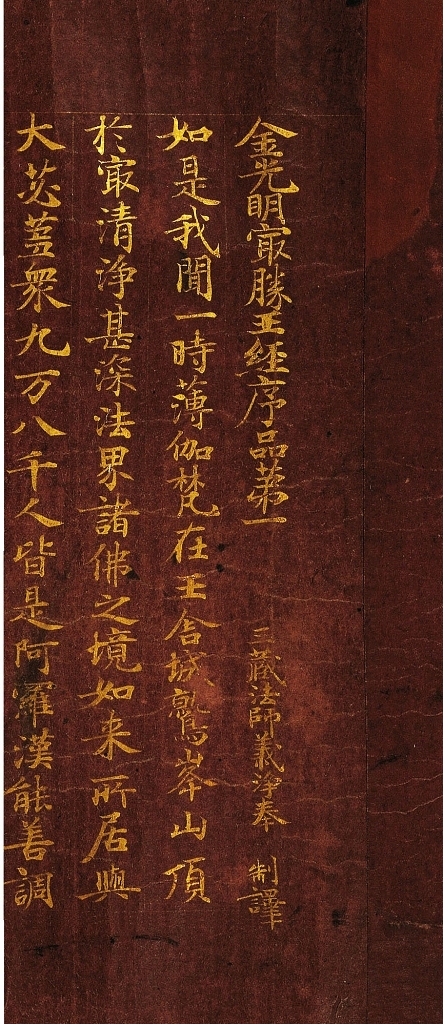 金光明冣勝王經序品苐一 三藏法師義淨奉 制譯
如是我聞一時薄伽梵在王舍城鷲峯山頂
於冣清淨甚深法界諸佛之境如来所居與
大苾蒭衆九万八千人皆是阿羅漢能善調